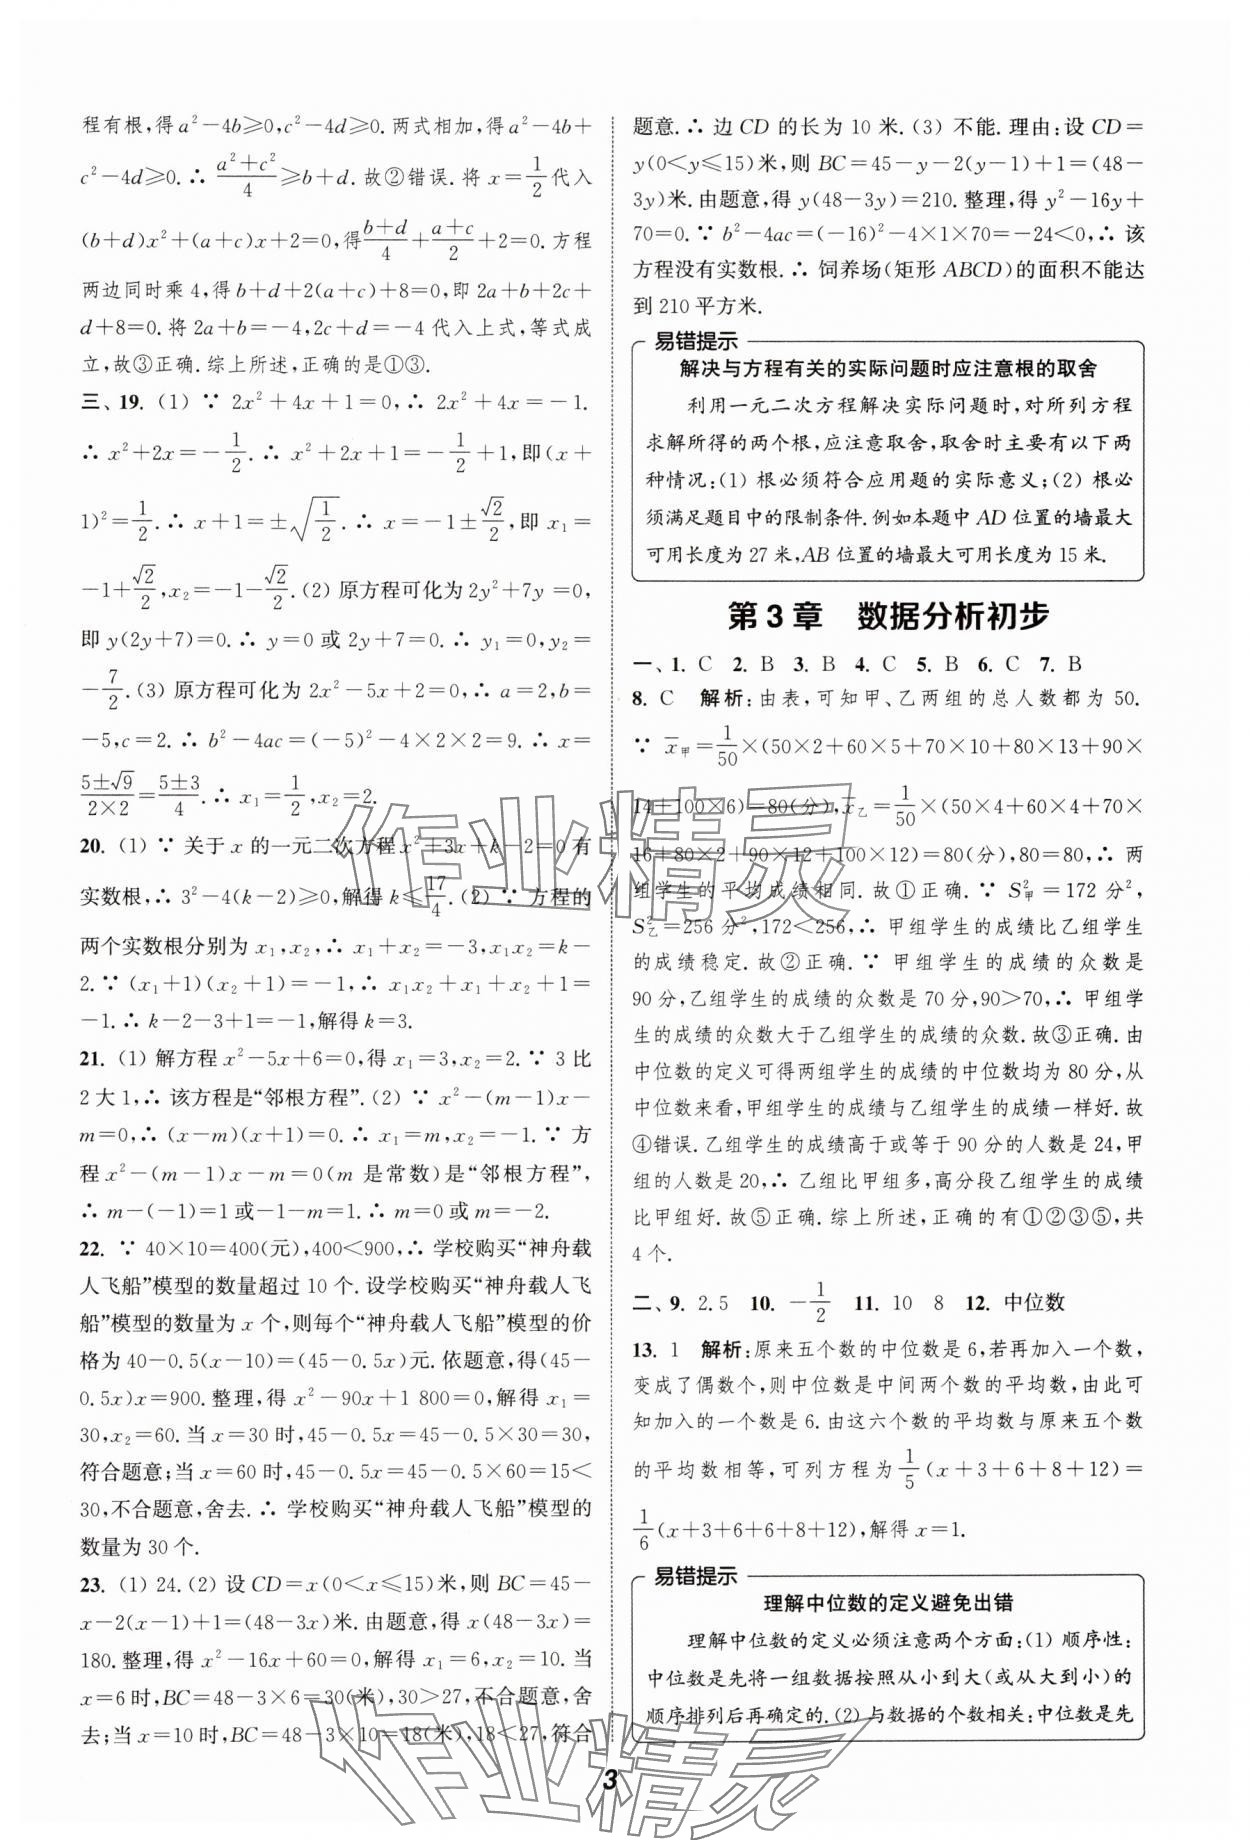 程有根,得a²-4b≥0,c²-4d≥0.两式相加,得a²-4b+
c²-4d≥0.∴ (a²+c²)/4≥b+d.故②错误.将x=1/2代入
(b+d)x²+(a+c)x+2=0,得(b+d)/4+(a+c)/2+2=0.方程
两边同时乘4,得b+d+2(a+c)+8=0,即2a+b+2c+
d+8=0.将2a+b=-4,2c+d=-4代入上式,等式成
立,故③正确.综上所述,正确的是①③.
三、19. (1) ∵ 2x²+4x+1=0,∴ 2x²+4x=-1.
∴ x²+2x=-1/2.∴ x²+2x+1=-1/2+1,即(x+
1)²=1/2.∴ x+1=±√(1/2).∴ x=-1±√2/2,即x₁=
-1+√2/2,x₂=-1-√2/2.(2) 原方程可化为2y²+7y=0,
即y(2y+7)=0.∴ y=0或2y+7=0.∴ y₁=0,y₂=
-7/2.(3) 原方程可化为2x²-5x+2=0,∴ a=2,b=
-5,c=2.∴ b²-4ac=(-5)²-4×2×2=9.∴ x=
(5±√9)/(2×2)=(5±3)/4.∴ x₁=1/2,x₂=2.
20. (1) ∵ 关于x的一元二次方程x²+3x+k-2=0有
实数根,∴ 3²-4(k-2)≥0,解得k≤17/4.(2) ∵ 方程的
两个实数根分别为x₁,x₂,∴ x₁+x₂=-3,x₁x₂=k-
2.∵ (x₁+1)(x₂+1)=-1,∴ x₁x₂+x₁+x₂+1=
-1.∴ k-2-3+1=-1,解得k=3.
21. (1) 解方程x²-5x+6=0,得x₁=3,x₂=2.∵ 3比
2大1,∴ 该方程是“邻根方程”.(2) ∵ x²-(m-1)x-
m=0,∴ (x-m)(x+1)=0.∴ x₁=m,x₂=-1.∵ 方
程x²-(m-1)x-m=0(m是常数)是“邻根方程”,
∴ m-(-1)=1或-1-m=1.∴ m=0或m=-2.
22. ∵ 40×10=400(元),400<900,∴ 学校购买“神舟载
人飞船”模型的数量超过10个.设学校购买“神舟载人飞
船”模型的数量为x个,则每个“神舟载人飞船”模型的价
格为40-0.5(x-10)=(45-0.5x)元.依题意,得(45-
0.5x)x=900.整理,得x²-90x+1 800=0,解得x₁=
30,x₂=60.当x=30时,45-0.5x=45-0.5×30=30,
符合题意;当x=60时,45-0.5x=45-0.5×60=15<
30,不合题意,舍去.∴ 学校购买“神舟载人飞船”模型的
数量为30个.
23. (1) 24.(2) 设CD=x(0<x≤15)米,则BC=45-
x-2(x-1)+1=(48-3x)米.由题意,得x(48-3x)=
180.整理,得x²-16x+60=0,解得x₁=6,x₂=10.当
x=6时,BC=48-3×6=30(米),30>27,不合题意,舍
去;当x=10时,BC=48-3×10=18(米),18<27,符合
题意.∴ 边CD的长为10米.(3) 不能.理由:设CD=
y(0<y≤15)米,则BC=45-y-2(y-1)+1=(48-
3y)米.由题意,得y(48-3y)=210.整理,得y²-16y+
70=0.∵ b²-4ac=(-16)²-4×1×70=-24<0,∴ 该
方程没有实数根.∴ 饲养场(矩形ABCD)的面积不能达
到210平方米.
易错提示
解决与方程有关的实际问题时应注意根的取舍
利用一元二次方程解决实际问题时,对所列方程
求解所得的两个根,应注意取舍,取舍时主要有以下两
种情况:(1) 根必须符合应用题的实际意义;(2) 根必
须满足题目中的限制条件.例如本题中AD位置的墙最大
可用长度为27米,AB位置的墙最大可用长度为15米.
第3章 数据分析初步
一、1. C 2. B 3. B 4. C 5. B 6. C 7. B
8. C 解析:由表,可知甲、乙两组的总人数都为50.
∵ x̄甲=1/50×(50×2+60×5+70×10+80×13+90×
14+100×6)=80(分),x̄乙=1/50×(50×4+60×4+70×
16+80×2+90×12+100×12)=80(分),80=80,∴ 两
组学生的平均成绩相同.故①正确.∵ S²甲=172分²,
S²乙=256分²,172<256,∴ 甲组学生的成绩比乙组学生
的成绩稳定.故②正确.∵ 甲组学生的成绩的众数是
90分,乙组学生的成绩的众数是70分,90>70,∴ 甲组学
生的成绩的众数大于乙组学生的成绩的众数.故③正确.由
中位数的定义可得两组学生的成绩的中位数均为80分,从
中位数来看,甲组学生的成绩与乙组学生的成绩一样好.故
④错误.乙组学生的成绩高于或等于90分的人数是24,甲
组的人数是20,∴ 乙组比甲组多,高分段乙组学生的成绩
比甲组好.故⑤正确.综上所述,正确的有①②③⑤,共
4个.
二、9. 2.5 10. -1/2 11. 10 8 12. 中位数
13. 1 解析:原来五个数的中位数是6,若再加入一个数,
变成了偶数个,则中位数是中间两个数的平均数,由此可
知加入的一个数是6.由这六个数的平均数与原来五个数
的平均数相等,可列方程为1/5(x+3+6+8+12)=
1/6(x+3+6+6+8+12),解得x=1.
易错提示
理解中位数的定义避免出错
理解中位数的定义必须注意两个方面:(1) 顺序性:
中位数是先将一组数据按照从小到大(或从大到小)的
顺序排列后再确定的.(2) 与数据的个数相关:中位数是先
3
作业精灵
作业精灵